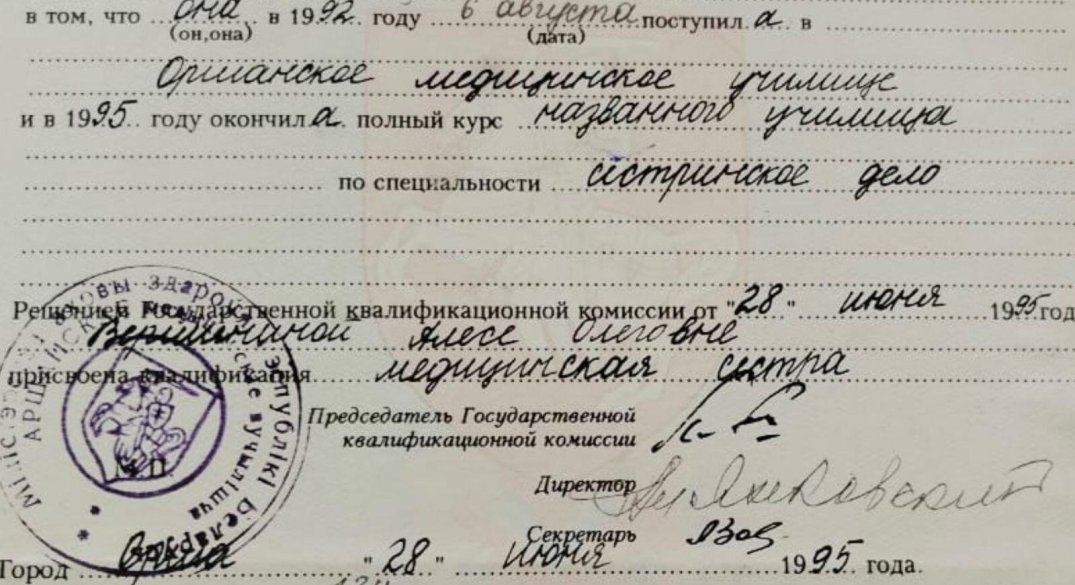 в том, что она в 1992 году 6 августа поступила в
(он,она) (дата)
Оршанское медицинское училище
и в 1995 году окончила полный курс названного училища
по специальности сестринское дело
Решением Государственной квалификационной комиссии от "28" июня 1995 год
Алесе Олеговне
присвоена квалификация медицинская сестра
Председатель Государственной
квалификационной комиссии
Директор
Секретарь
М.П.
Город Орша "28" июня 1995 года.
Міністэрства аховы здароўя Рэспублікі Беларусь
вучылішча